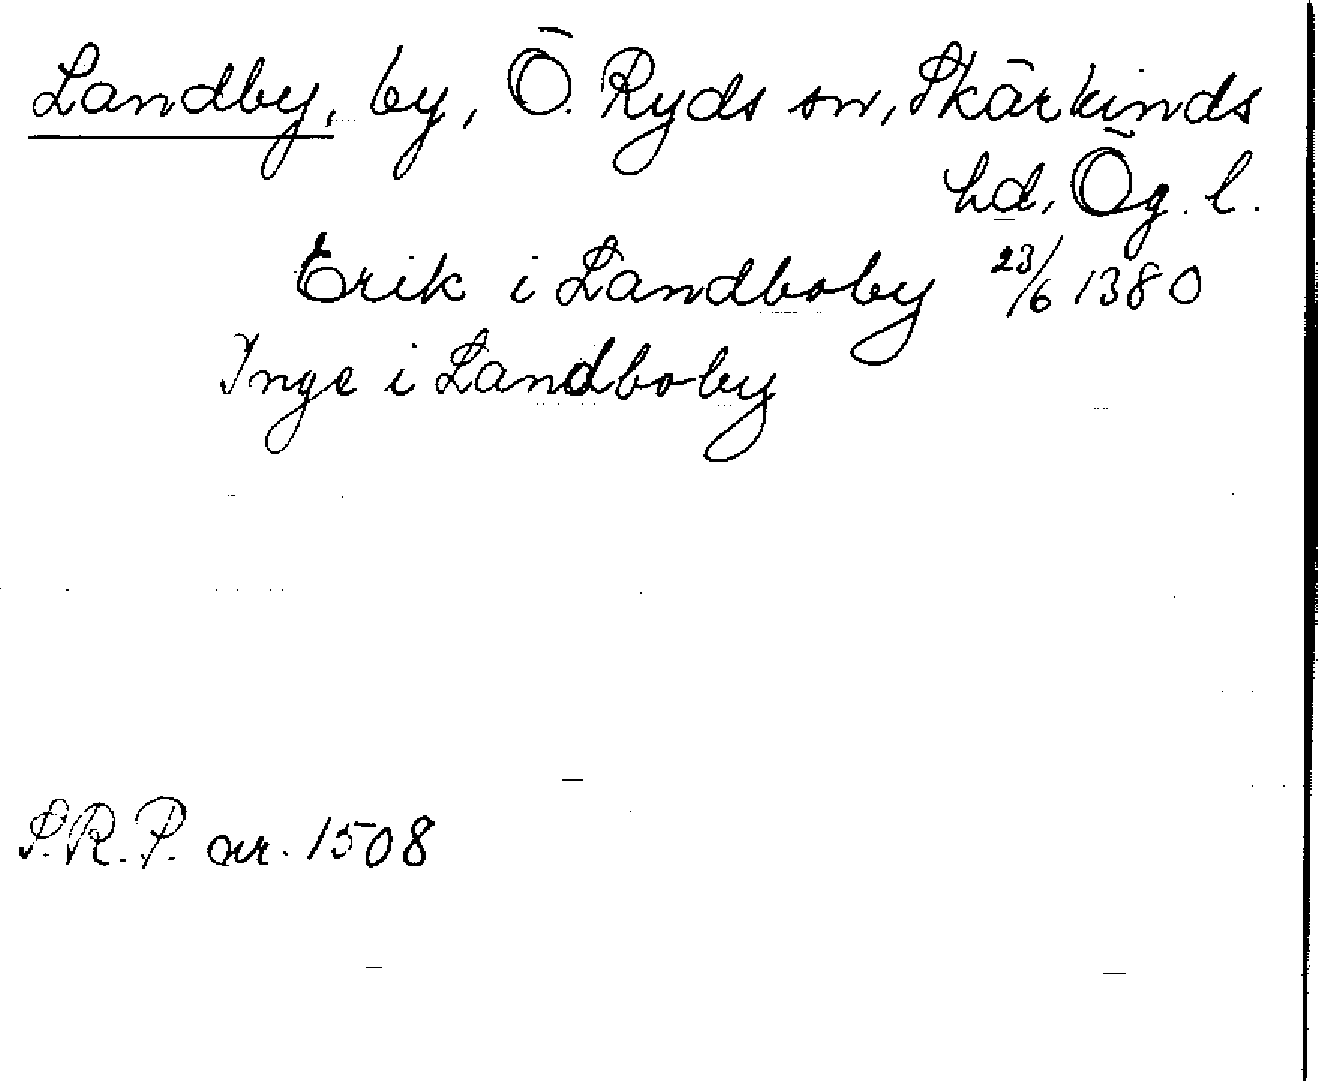 Landby, by, Ö. Ryds sn, Skärkinds
hd, Ög. l.
Erik i Landboby 23/6 1380
Inge i Landboby
S.R.P. nr. 1508